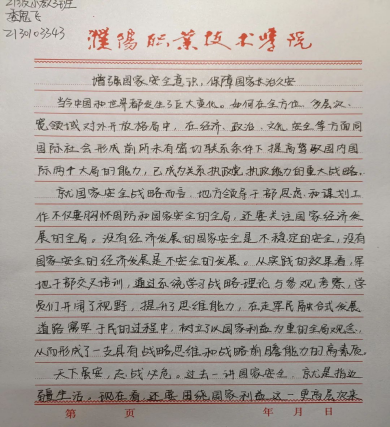 21级小教3班
2130103343
濮陽职業技术學院
增强国家安全意识，保障国家长治久安
当今中国和世界都发生了巨大变化。如何在全方位、多层次、
宽领域对外开放格局中，在经济、政治、文化、安全等方面同
国际社会形成前所未有密切联系条件下提高驾驭国内国
际两个大局的能力，已成为关系执政党执政能力的重大战略。
就国家安全战略而言，地方领导干部思虑和谋划工
作不仅要胸怀国防和国家安全的全局，还要关注国家经济发
展的全局。没有经济发展的国家安全是不稳定的安全，没有
国家安全的经济发展是不安全的发展。从实践的效果看，军
地干部交叉培训，通过系统学习战略理论与参观考察，学
员们开阔了视野，提升了思维能力，在走军民融合式发展
道路寓军于民的过程中，树立了以国家利益为重的全局观念，
从而形成了一支具有战略思维和战略前瞻能力的高素质。
天下虽安，忘战必危。过去一讲国家安全，就是指边
疆生活。现在看，还要围绕国家利益这一更高层次来
第 页 年 月 日